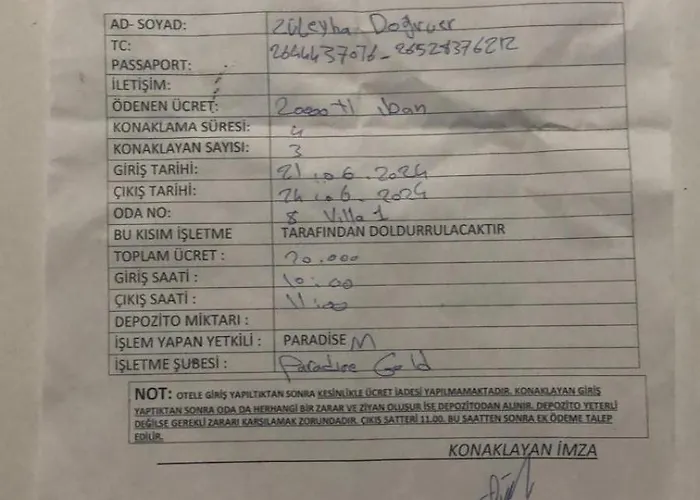 AD- SOYAD: Züleyha Doğruer
TC:
PASSAPORT:
İLETİŞİM:
ÖDENEN ÜCRET: 20000 tl iban
KONAKLAMA SÜRESİ: 4
KONAKLAYAN SAYISI: 3
GİRİŞ TARİHİ: 21.06.2024
ÇIKIŞ TARİHİ: 24.06.2024
ODA NO: 8 Villa 1
BU KISIM İŞLETME TARAFINDAN DOLDURRULACAKTIR
TOPLAM ÜCRET : 20.000
GİRİŞ SAATİ : 10:00
ÇIKIŞ SAATİ : 11:00
DEPOZİTO MİKTARI :
İŞLEM YAPAN YETKİLİ : PARADİSE M
İŞLETME ŞUBESİ : Paradise Gold
NOT: OTELE GİRİŞ YAPILTIKTAN SONRA KESİNLİKLE ÜCRET İADESİ YAPILMAMAKTADIR. KONAKLAYAN GİRİŞ
YAPTIKTAN SONRA ODA DA HERHANGİ BİR ZARAR VE ZİYAN OLUŞUR İSE DEPOZİTODAN ALINIR. DEPOZİTO YETERLİ
DEĞİLSE GEREKLİ ZARARI KARŞILAMAK ZORUNDADIR. ÇIKIŞ SATTERİ 11.00. BU SAATTEN SONRA EK ÖDEME TALEP
EDİLİR.
KONAKLAYAN İMZA